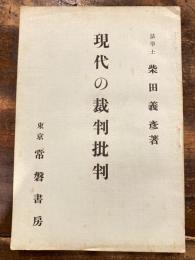 法學士 柴田義彦著
現代の裁判批判
東京 常磐書房